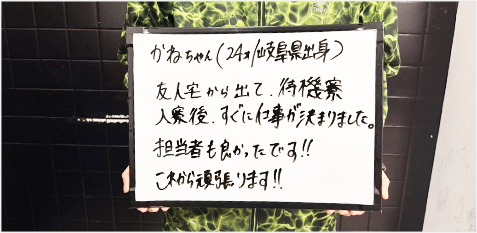 かねちゃん(24才/岐阜県出身)
友人宅から出て、待機寮
入寮後、すぐに仕事が決まりました。
担当者も良かったです!!
これから頑張ります!!